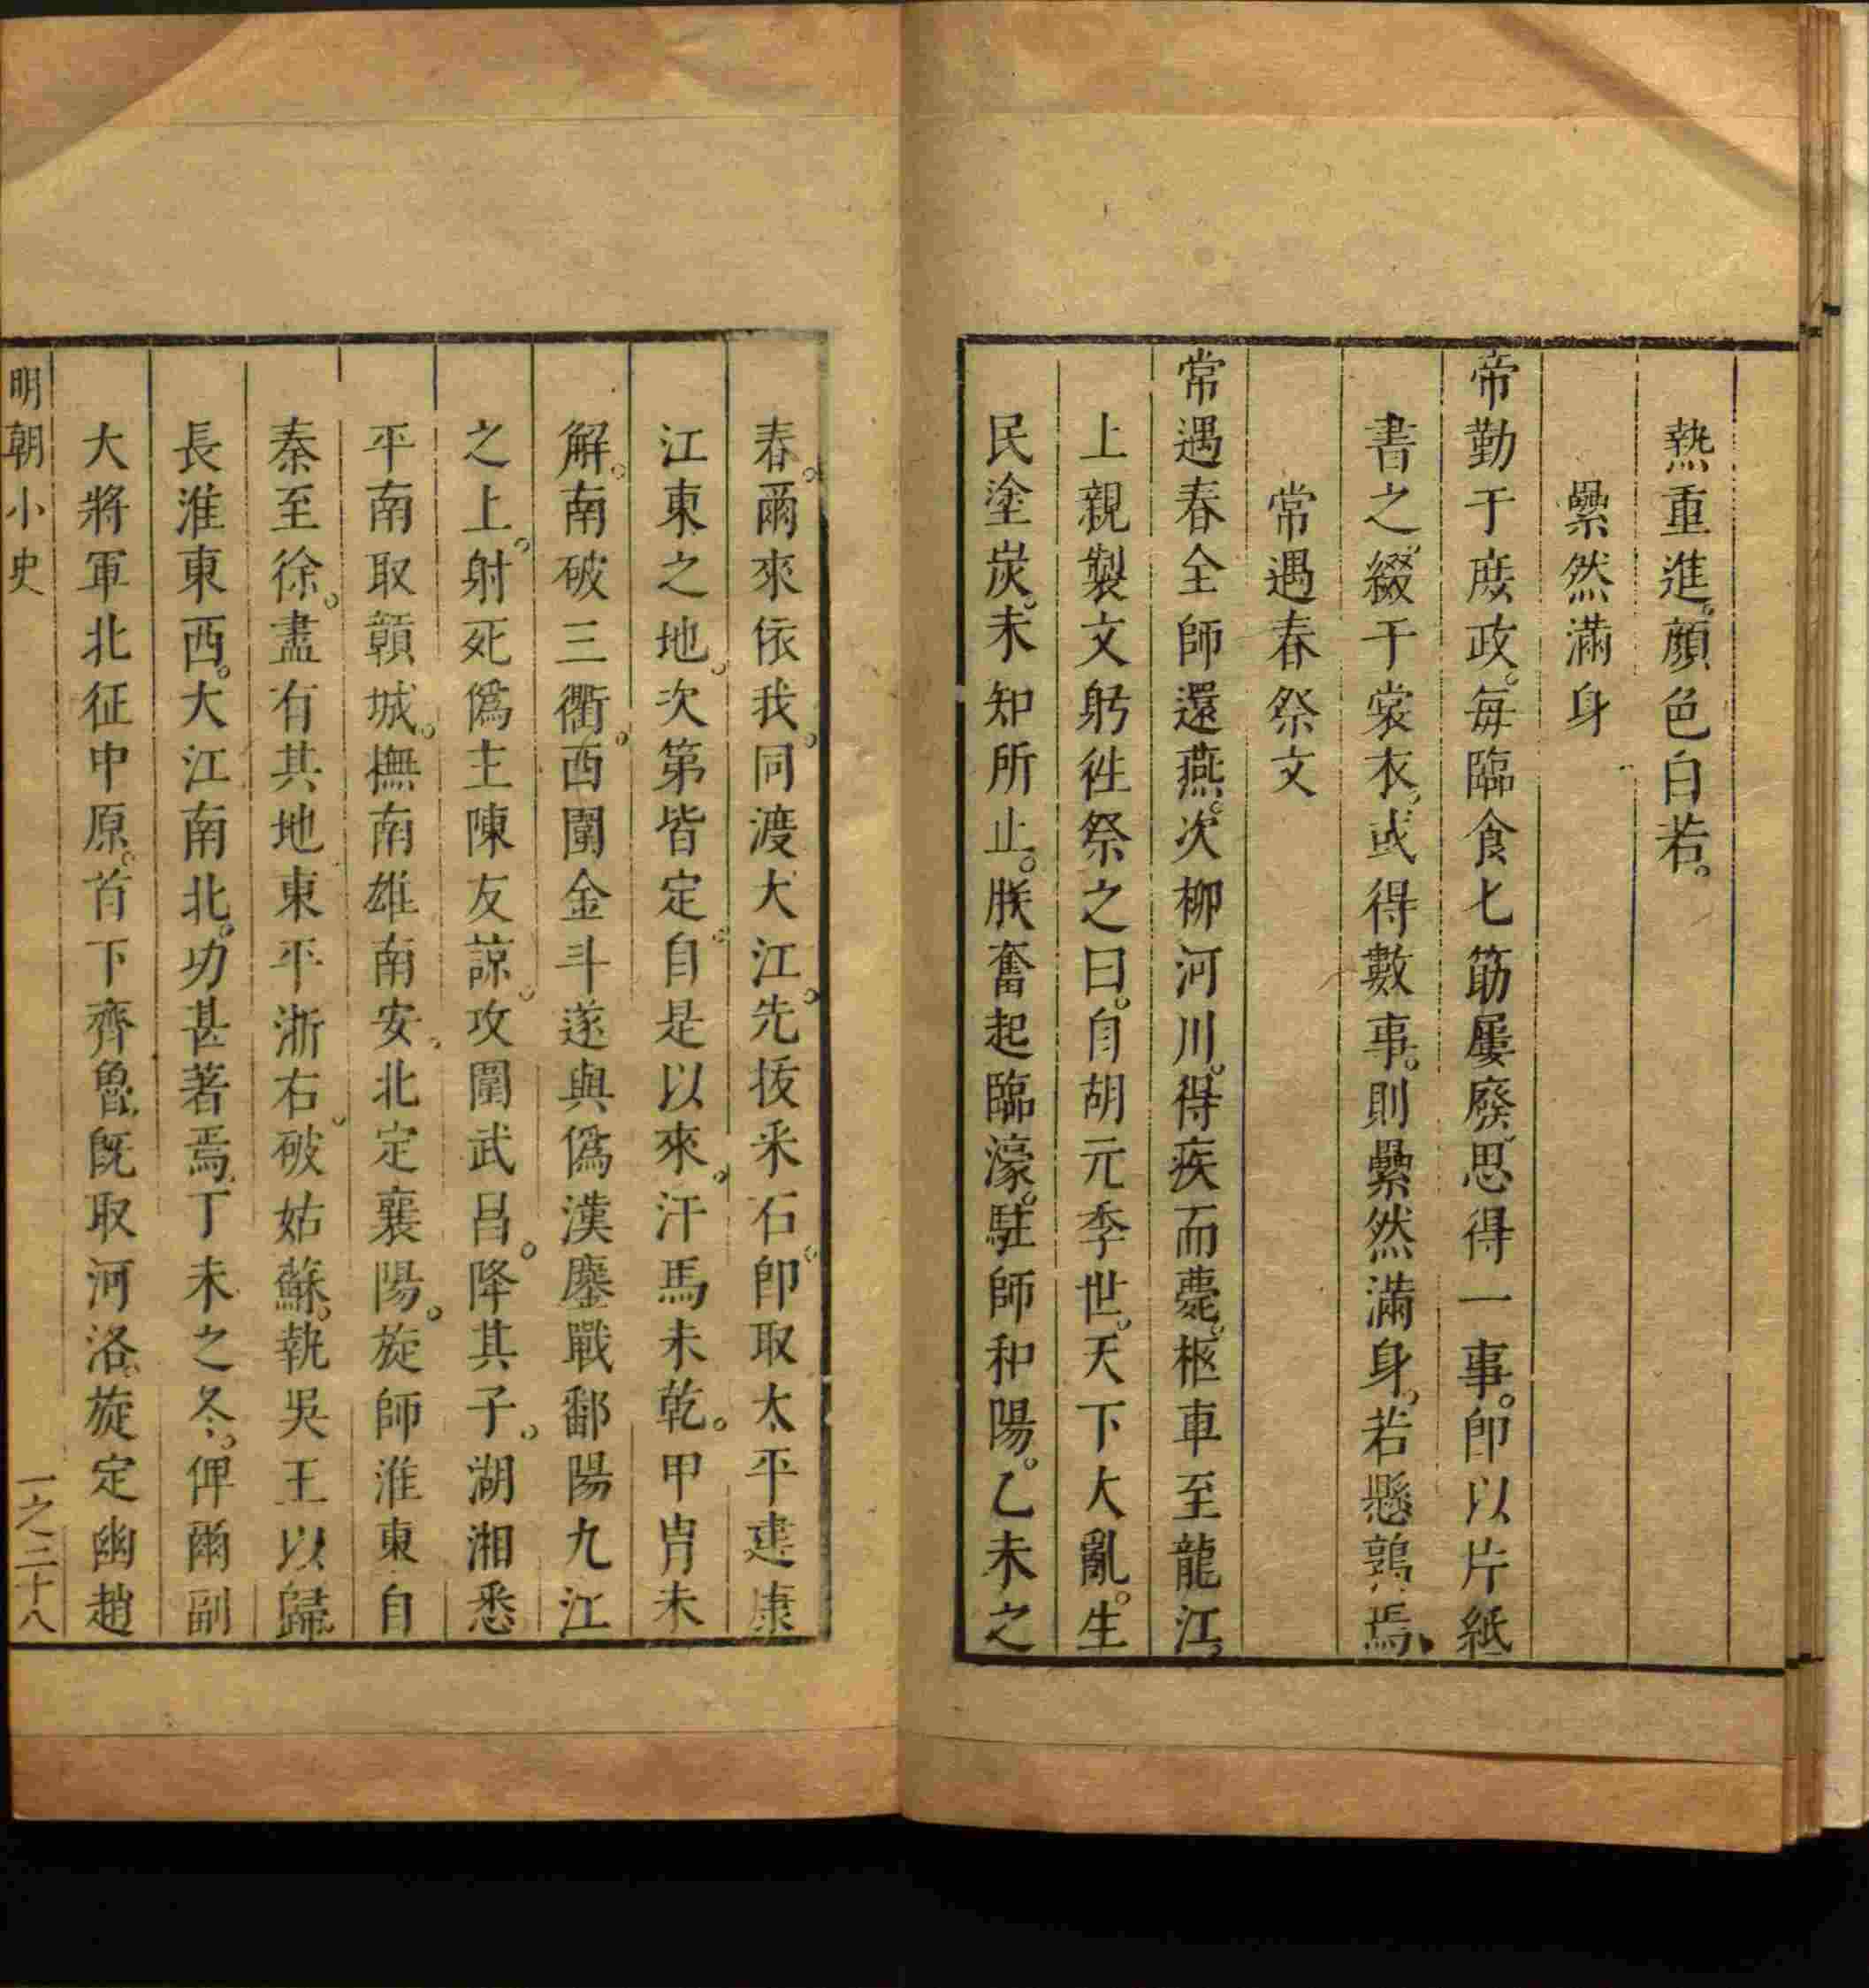 熱重進。顔色自若。
纍然滿身
帝勤于庶政。每臨食匕筯屢廢。思得一事。即以片紙
書之。綴于裳衣。或得數事。則纍然滿身。若懸鶉焉。
常遇春祭文
常遇春全師還燕。次柳河川。得疾而薨。柩車至龍江。
上親製文躬徃祭之曰。自胡元季世。天下大亂。生
民塗炭。未知所止。朕奮起臨濠。駐師和陽。乙未之
春。爾來依我。同渡大江。先拔采石。即取太平建康
江東之地。次第皆定。自是以來。汗馬未乾。甲冑未
解。南破三衢。西圍金斗。遂與僞漢鏖戰鄱陽九江
之上。射死僞主陳友諒。攻圍武昌。降其子。湖湘悉
平。南取贛城。撫南雄南安。北定襄陽。旋師淮東。自
秦至徐。盡有其地。東平浙右。破姑蘇。執吳王以歸。
長淮東西。大江南北。功甚著焉。丁未之冬。俾爾副
大將軍北征中原。首下齊魯。旣取河洛。旋定幽趙
明朝小史 一之三十八